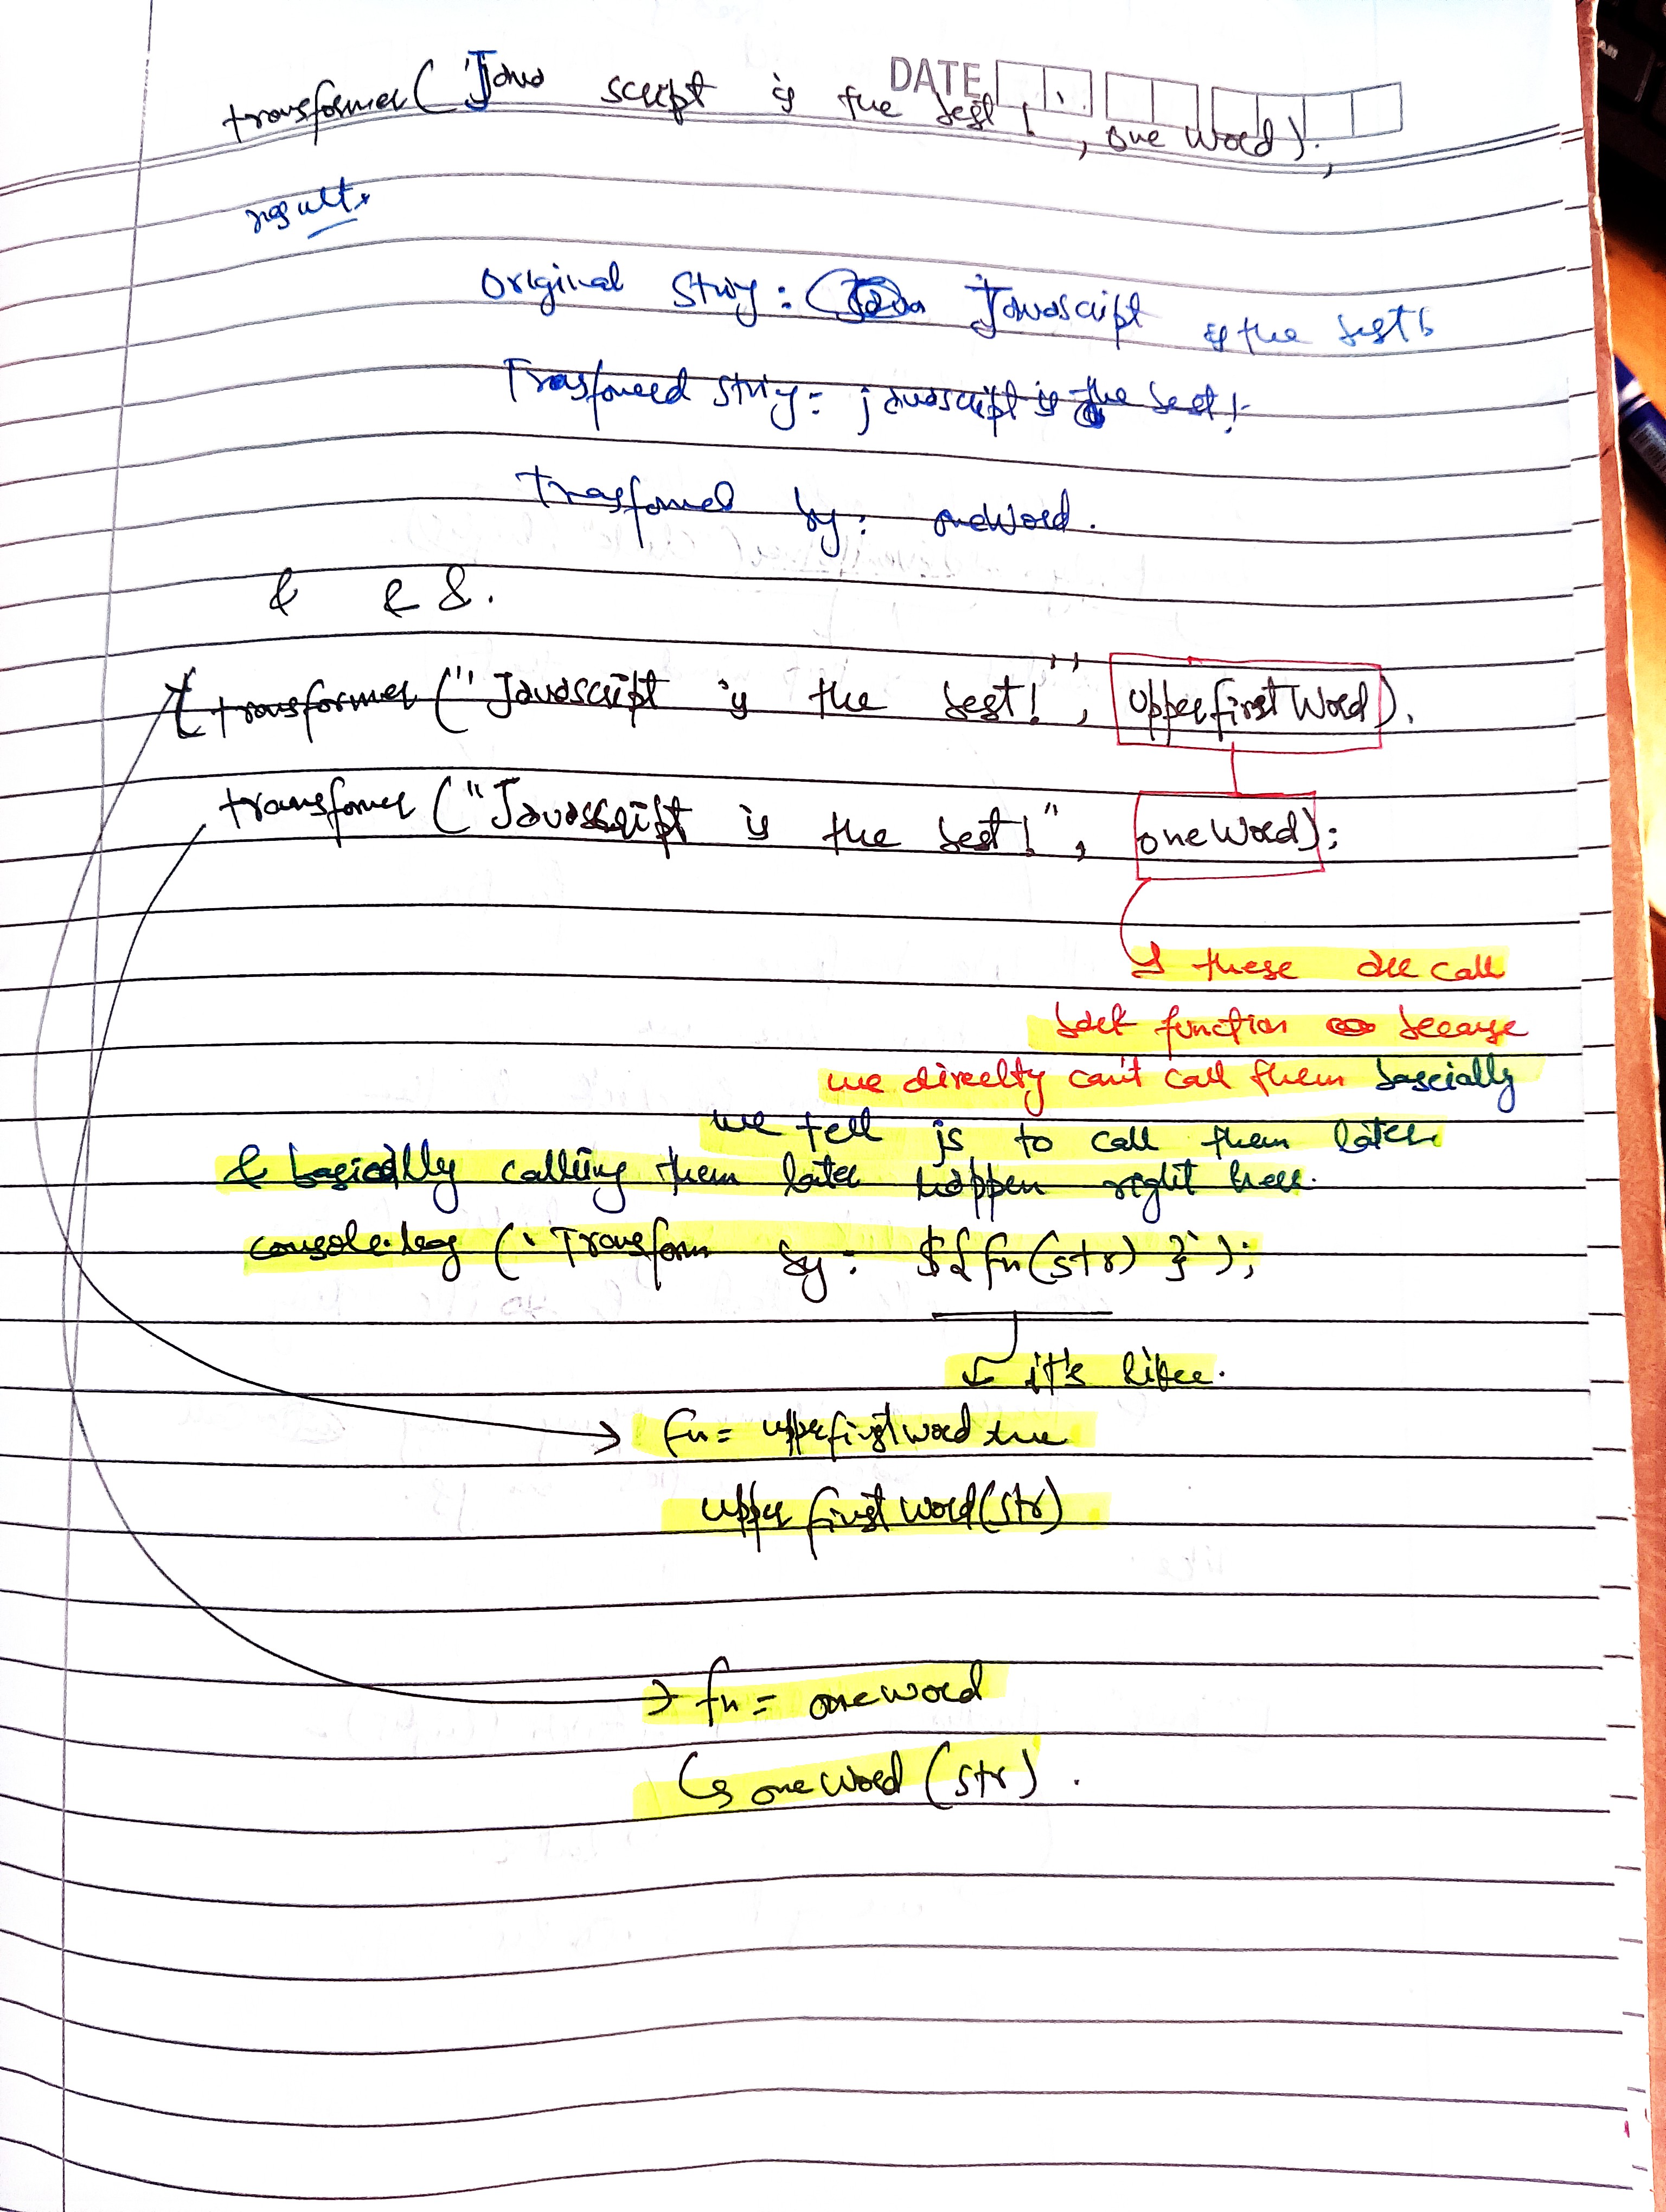 DATE
transformer ('Java script is the best!, one Word);
result.
Original String: Javascript is the best!
Trasfomed string: javascript is the best!
Trasfomed by: oneWord.
& & &.
transformer ("Javascript is the best!", UpperfirstWord).
transfomer ("Javascript is the best!", oneWord);
these are call
back function because
we direclty can't call them bascially
we tell js to call them later
& basically calling them later happen right here.
console.log (`Transform by: ${fn(str)}`);
it's like.
fn = upperfirstword
upper first word(str)
fn = oneword
oneword (str).